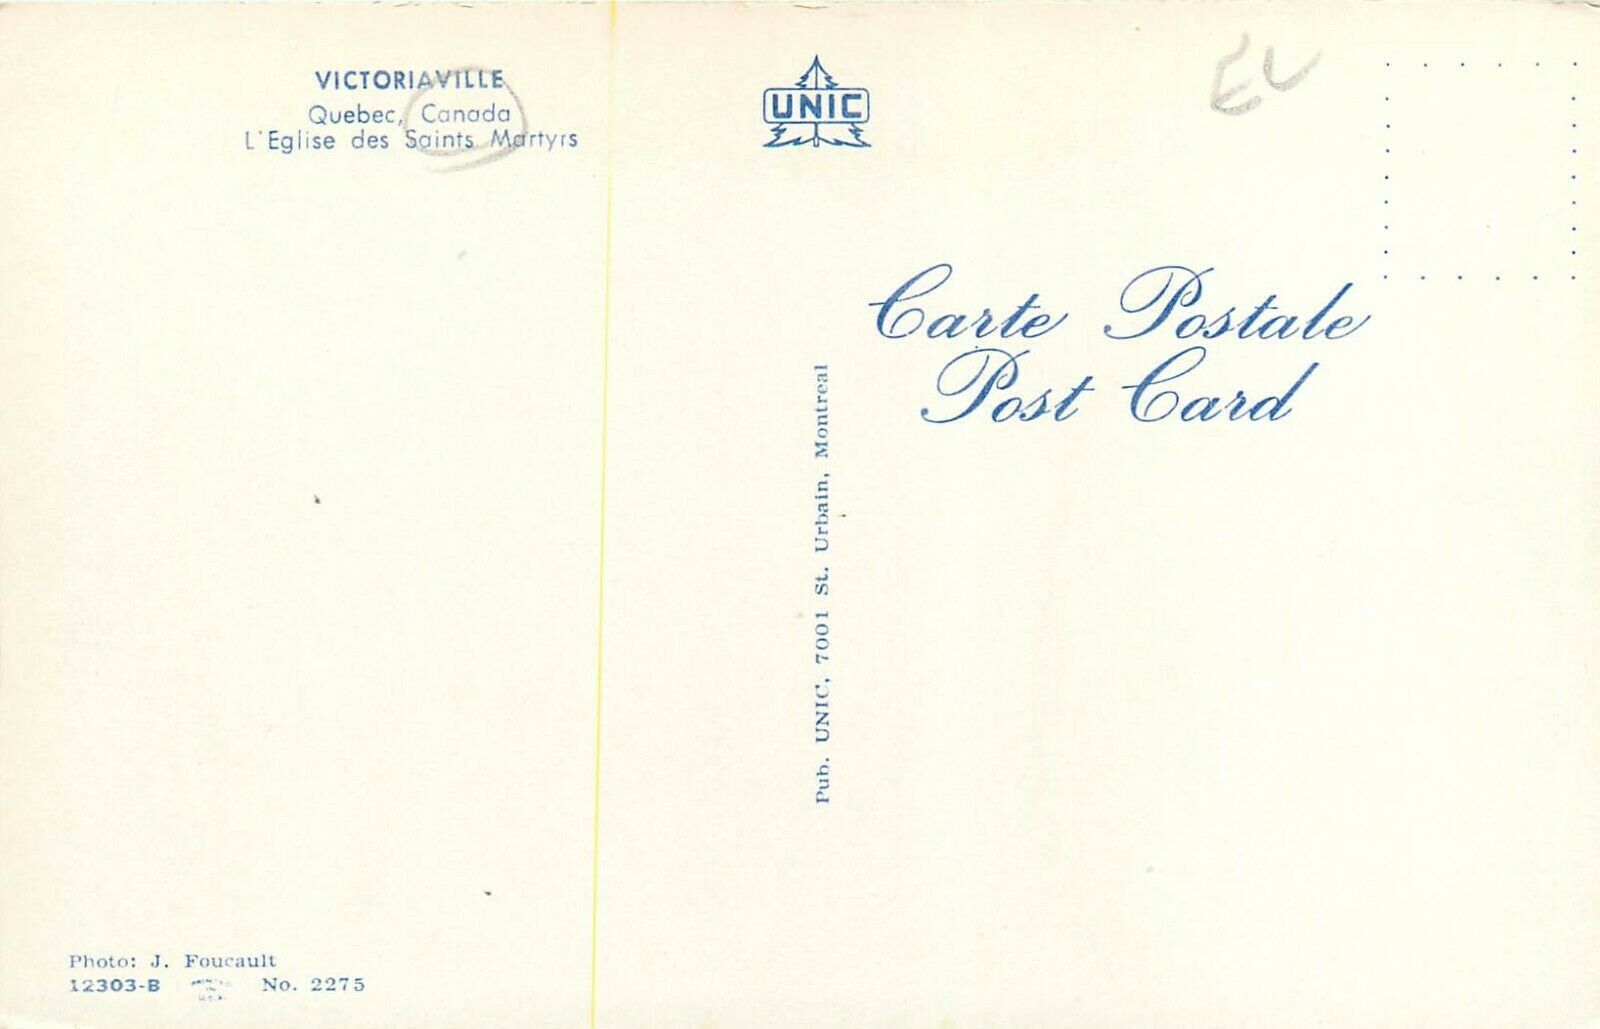 VICTORIAVILLE
Quebec, Canada
L'Eglise des Saints Martyrs
UNIC
EL
Carte Postale
Post Card
Pub. UNIC, 7001 St. Urbain, Montreal
Photo: J. Foucault
12303-B PRINTED IN U.S.A. No. 2275